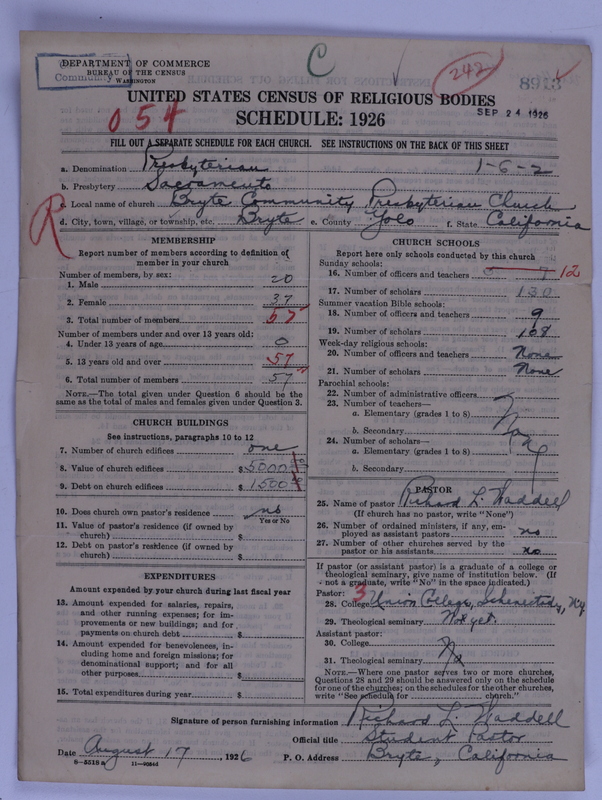 DEPARTMENT OF COMMERCE
BUREAU OF THE CENSUS
WASHINGTON
Community
C
242
8913
UNITED STATES CENSUS OF RELIGIOUS BODIES
SEP 24 1926
SCHEDULE: 1926
054
FILL OUT A SEPARATE SCHEDULE FOR EACH CHURCH. SEE INSTRUCTIONS ON THE BACK OF THIS SHEET
a. Denomination Presbyterian 1-6-2
b. Presbytery Sacramento
c. Local name of church Bryte Community Presbyterian Church
d. City, town, village, or township, etc. Bryte e. County Yolo f. State California
R
MEMBERSHIP
Report number of members according to definition of
member in your church
Number of members, by sex:
1. Male 20
2. Female 37
3. Total number of members 57
Number of members under and over 13 years old:
4. Under 13 years of age 0
5. 13 years old and over 57
6. Total number of members 57
NOTE.—The total given under Question 6 should be
same as the total of males and females given under Question 3.
CHURCH BUILDINGS
See instructions, paragraphs 10 to 12
7. Number of church edifices one
8. Value of church edifices $5000
9. Debt on church edifices $1500
10. Does church own pastor's residence no
Yes or No
11. Value of pastor's residence (if owned by
church) $
12. Debt on pastor's residence (if owned by
church) $
EXPENDITURES
Amount expended by your church during last fiscal year
13. Amount expended for salaries, repairs,
and other running expenses; for im-
provements or new buildings; and for
payments on church debt $
14. Amount expended for benevolences, in-
cluding home and foreign missions; for
denominational support; and for all
other purposes $
15. Total expenditures during year $
CHURCH SCHOOLS
Report here only schools conducted by this church
Sunday schools:
16. Number of officers and teachers 7 12
17. Number of scholars 130
Summer vacation Bible schools:
18. Number of officers and teachers 9
19. Number of scholars 108
Week-day religious schools:
20. Number of officers and teachers None
21. Number of scholars None
Parochial schools:
22. Number of administrative officers
23. Number of teachers—
a. Elementary (grades 1 to 8)
b. Secondary
24. Number of scholars—
a. Elementary (grades 1 to 8)
b. Secondary
None
PASTOR
25. Name of pastor Richard L. Waddell
(If church has no pastor, write "None")
26. Number of ordained ministers, if any, em-
ployed as assistant pastors no
27. Number of other churches served by the
pastor or his assistants no
If pastor (or assistant pastor) is a graduate of a college or
theological seminary, give name of institution below. (If
not a graduate, write "No" in the space indicated.)
Pastor: 3
28. College Union College, Schenectady, N.Y.
29. Theological seminary Not yet.
Assistant pastor:
30. College
31. Theological seminary No
NOTE.—Where one pastor serves two or more churches,
Questions 28 and 29 should be answered only on the schedule
for one of the churches; on the schedules for the other churches,
write "See schedule for church."
Signature of person furnishing information Richard L. Waddell
Official title Student Pastor
Date August 17, 1926 P. O. Address Bryte, California
8—5518a 11—9084d